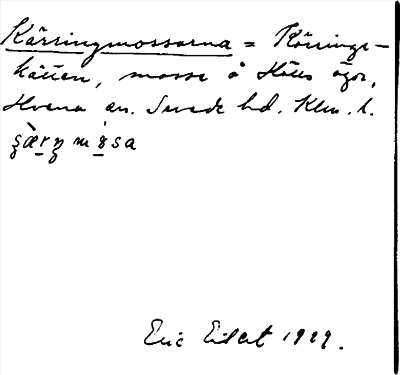 Kärringmossarna = Kärrings-
kätten, mosse å Hults ägor,
Hvena sn. Sevede hd. Klm. l.
Eric Eilert 1929.